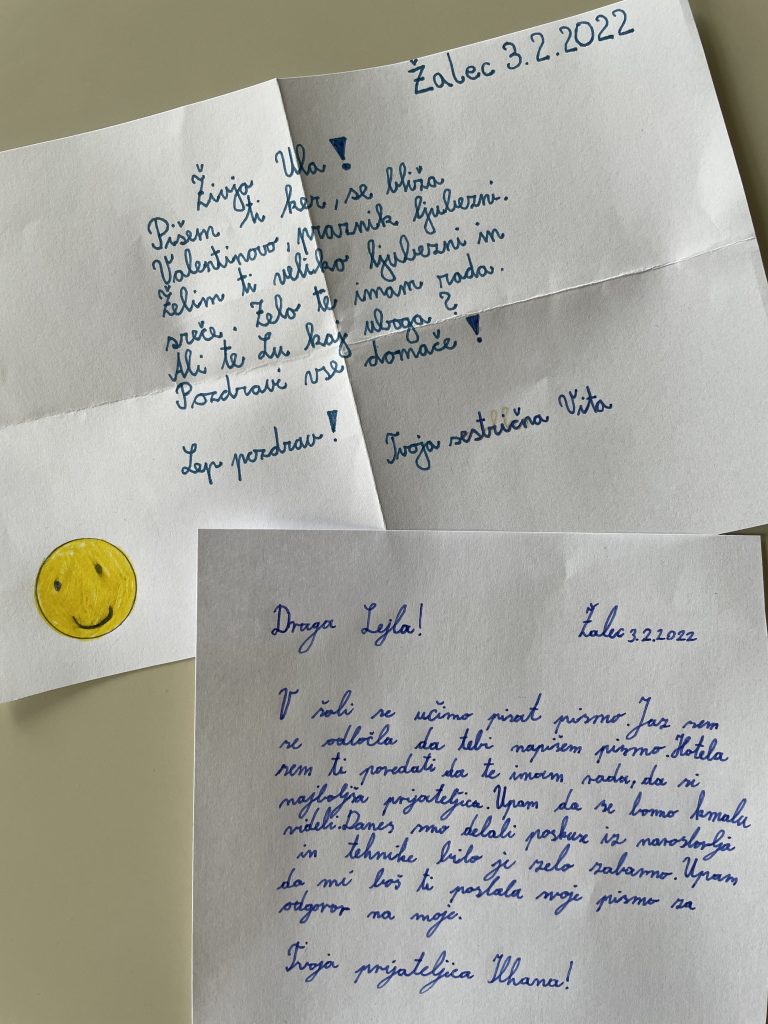 Žalec 3.2.2022
Živjo Ula!
Pišem ti ker, se bliža
Valentinovo, praznik ljubezni.
Želim ti veliko ljubezni in
sreče. Zelo te imam rada.
Ali te Lu kaj uboga?
Pozdravi vse domače!
Lep pozdrav! Tvoja sestrična Vita
Draga Lejla! Žalec 3.2.2022
V šoli se učimo pisat pismo. Jaz sem
se odločla da tebi napišem pismo. Hotela
sem ti povedati da te imam rada, da si
najboljša prijateljica. Upam da se bomo kmalu
videli. Danes smo delali poskuse iz naroslovja
in tehnike bilo je zelo zabavno. Upam
da mi boš ti poslala svoje pismo za
odgovor na moje.
Tvoja prijateljica Ilhana!